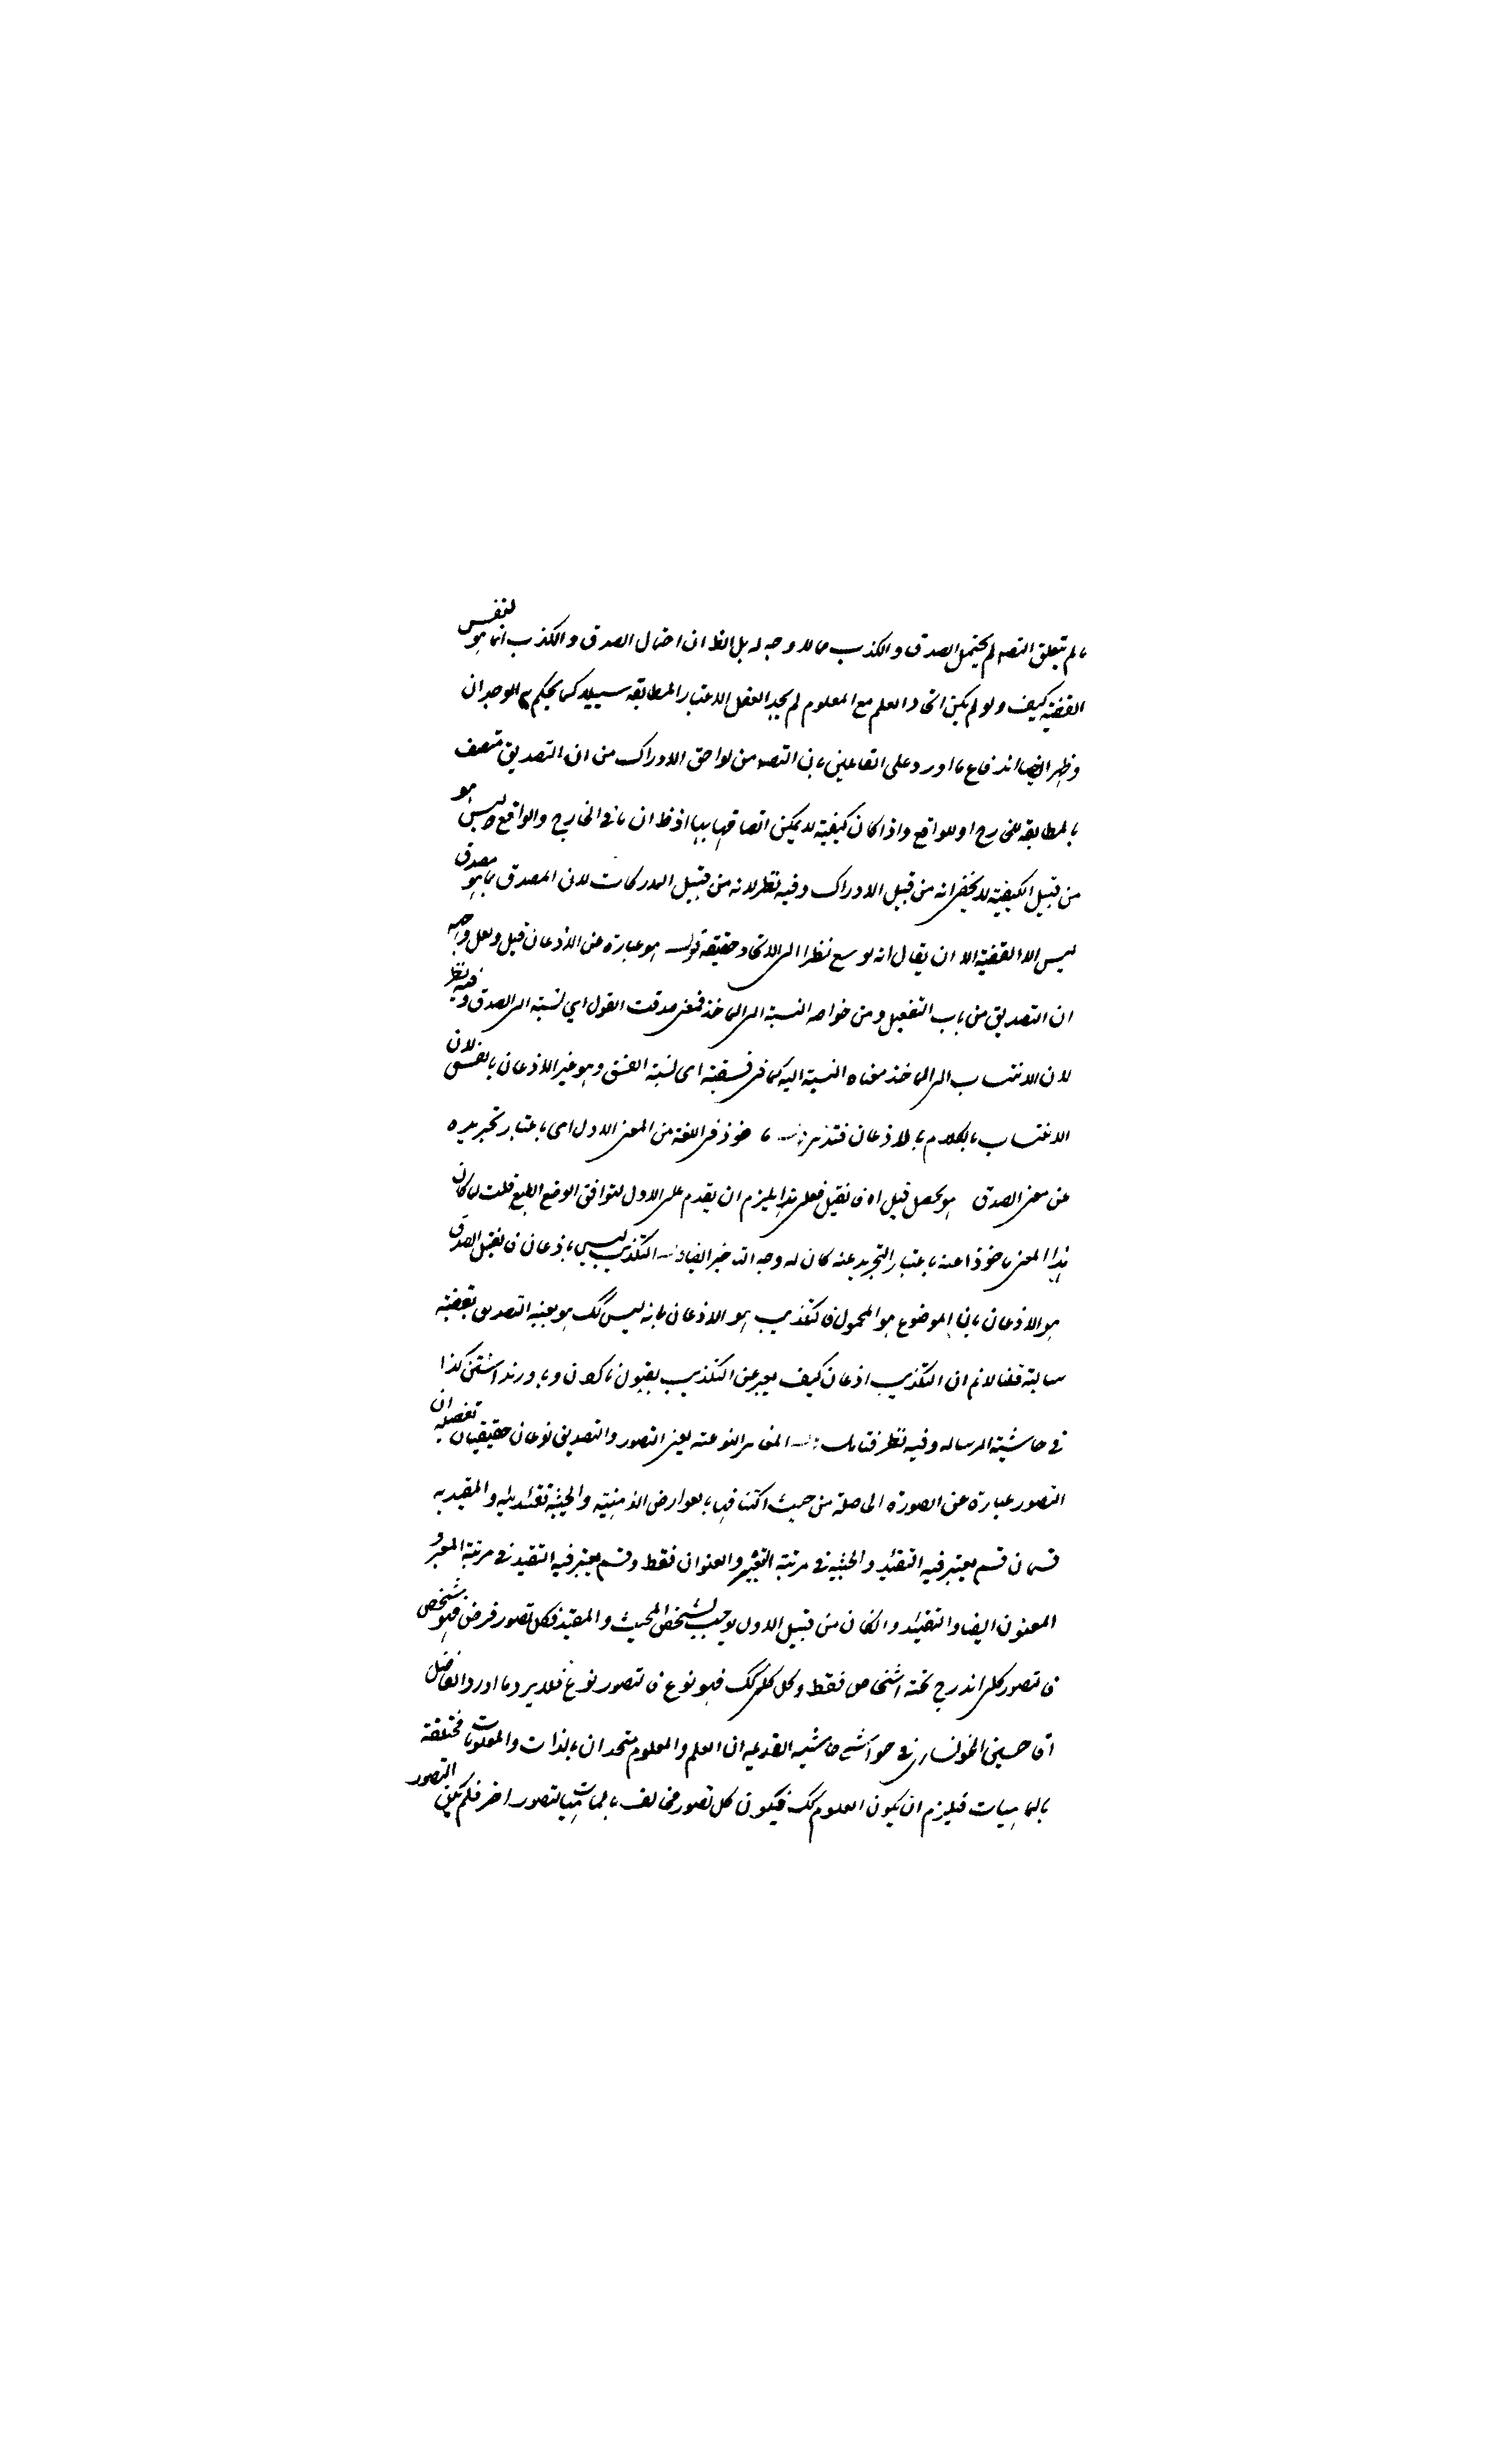 ما لم يتعلق التصه لم يحتمل الصدق والكذب مما لا وجه له بل الظ ان احتمال الصدق والكذب انما هو لنفس
القضية كيف ولو لم يكن اتحاد العلم مع المعلوم لم يجد العقل الاعتبار المطابقه سبيلا كما يحكم به الوجدان
وظهر ايضا اندفاع ما اورد على القائلين بان التصه من لواحق الادراك من ان التصديق متصف
بالمطابقه للخارج او للواقع واذا كان كيفية لا يمكن اتصافها بها اذ ظ ان ما في الخارج والواقع ليس هو
من قبيل الكيفية لا يخفى انه من قبيل الادراك وفيه نظر لانه من قبيل المدركات لان المصدق بما هو مصدق
ليس الا القضية الا ان يقال انه توسع نظرا الى الاتحاد حقيقة قوله هو عبارة عن الاذعان قيل ولعل وجهه
ان التصديق من باب التفعيل ومن خواصه النسبة الى الماخذ فمعنى صدقت القول اي نسبته الى الصدق وفيه نظر
لان الانتساب الى الماخذ معناه النسبة اليه كما في فسقته اى نسبته الفسق وهو غير الاذعان بالفسق لان
الانتساب بالكلام لا بالاذعان فتدبر قوله ما خوذ في اللغة من المعنى الاول اى باعتبار تجريده
عن معنى الصدق هو يحصل قيل اه فان قيل فعلى هذا يلزم ان يقدم على الاول لتوافق الوضع الطبع قلت لما كان
هذا المعنى ماخوذا عنه باعتبار التجريد عنه كان له وجه التاخير ايضا قوله التكذيب ليس باذعان فان قيل الصدق
هو الاذعان بان الموضوع هو المحمول فالتكذيب هو الاذعان بانه ليس كك هو بعينه التصديق بقضية
سالبة قلنا لا نم ان التكذيب اذعان كيف يعبر عن التكذيب بقبول ناكردن وباور نداشتن كذا
في حاشية الرساله وفيه نظر فتامل قوله المغايرالنوعته يعنى التصور والتصديق نوعان حقيقيان تفصيله ان
التصور عبارة عن الصورة الحاصلة من حيث اكتنافها بالعوارض الذهنيته والحيثية تقئيديه والمقيد به
قسمان قسم يعتبر فيه التقئيد والحيثية في مرتبة التعبير والعنوان فقط وقسم يعتبر فيه التقيد في مرتبة المعبر و
المعنون ايضا والتقئيد والكان من قبيل الاول يوجب تشخص المحيث والمقيد فكل تصور فرض فهو شخص
فالتصور كلى اندرج تحته اشخاص فقط وكل كلى كك فهو نوع فالتصور نوع فلا يرد ما اورد الفاضل
اقا حسين الخونسارى في حواشى حاشيه القديمه ان العلم والمعلوم متحدان بالذات والمعلومات مختلفة
بالماهيات فيلزم ان يكون العلوم كك فيكون كل تصور مخالف بالماهيات لتصور اخر فلم يكن التصور